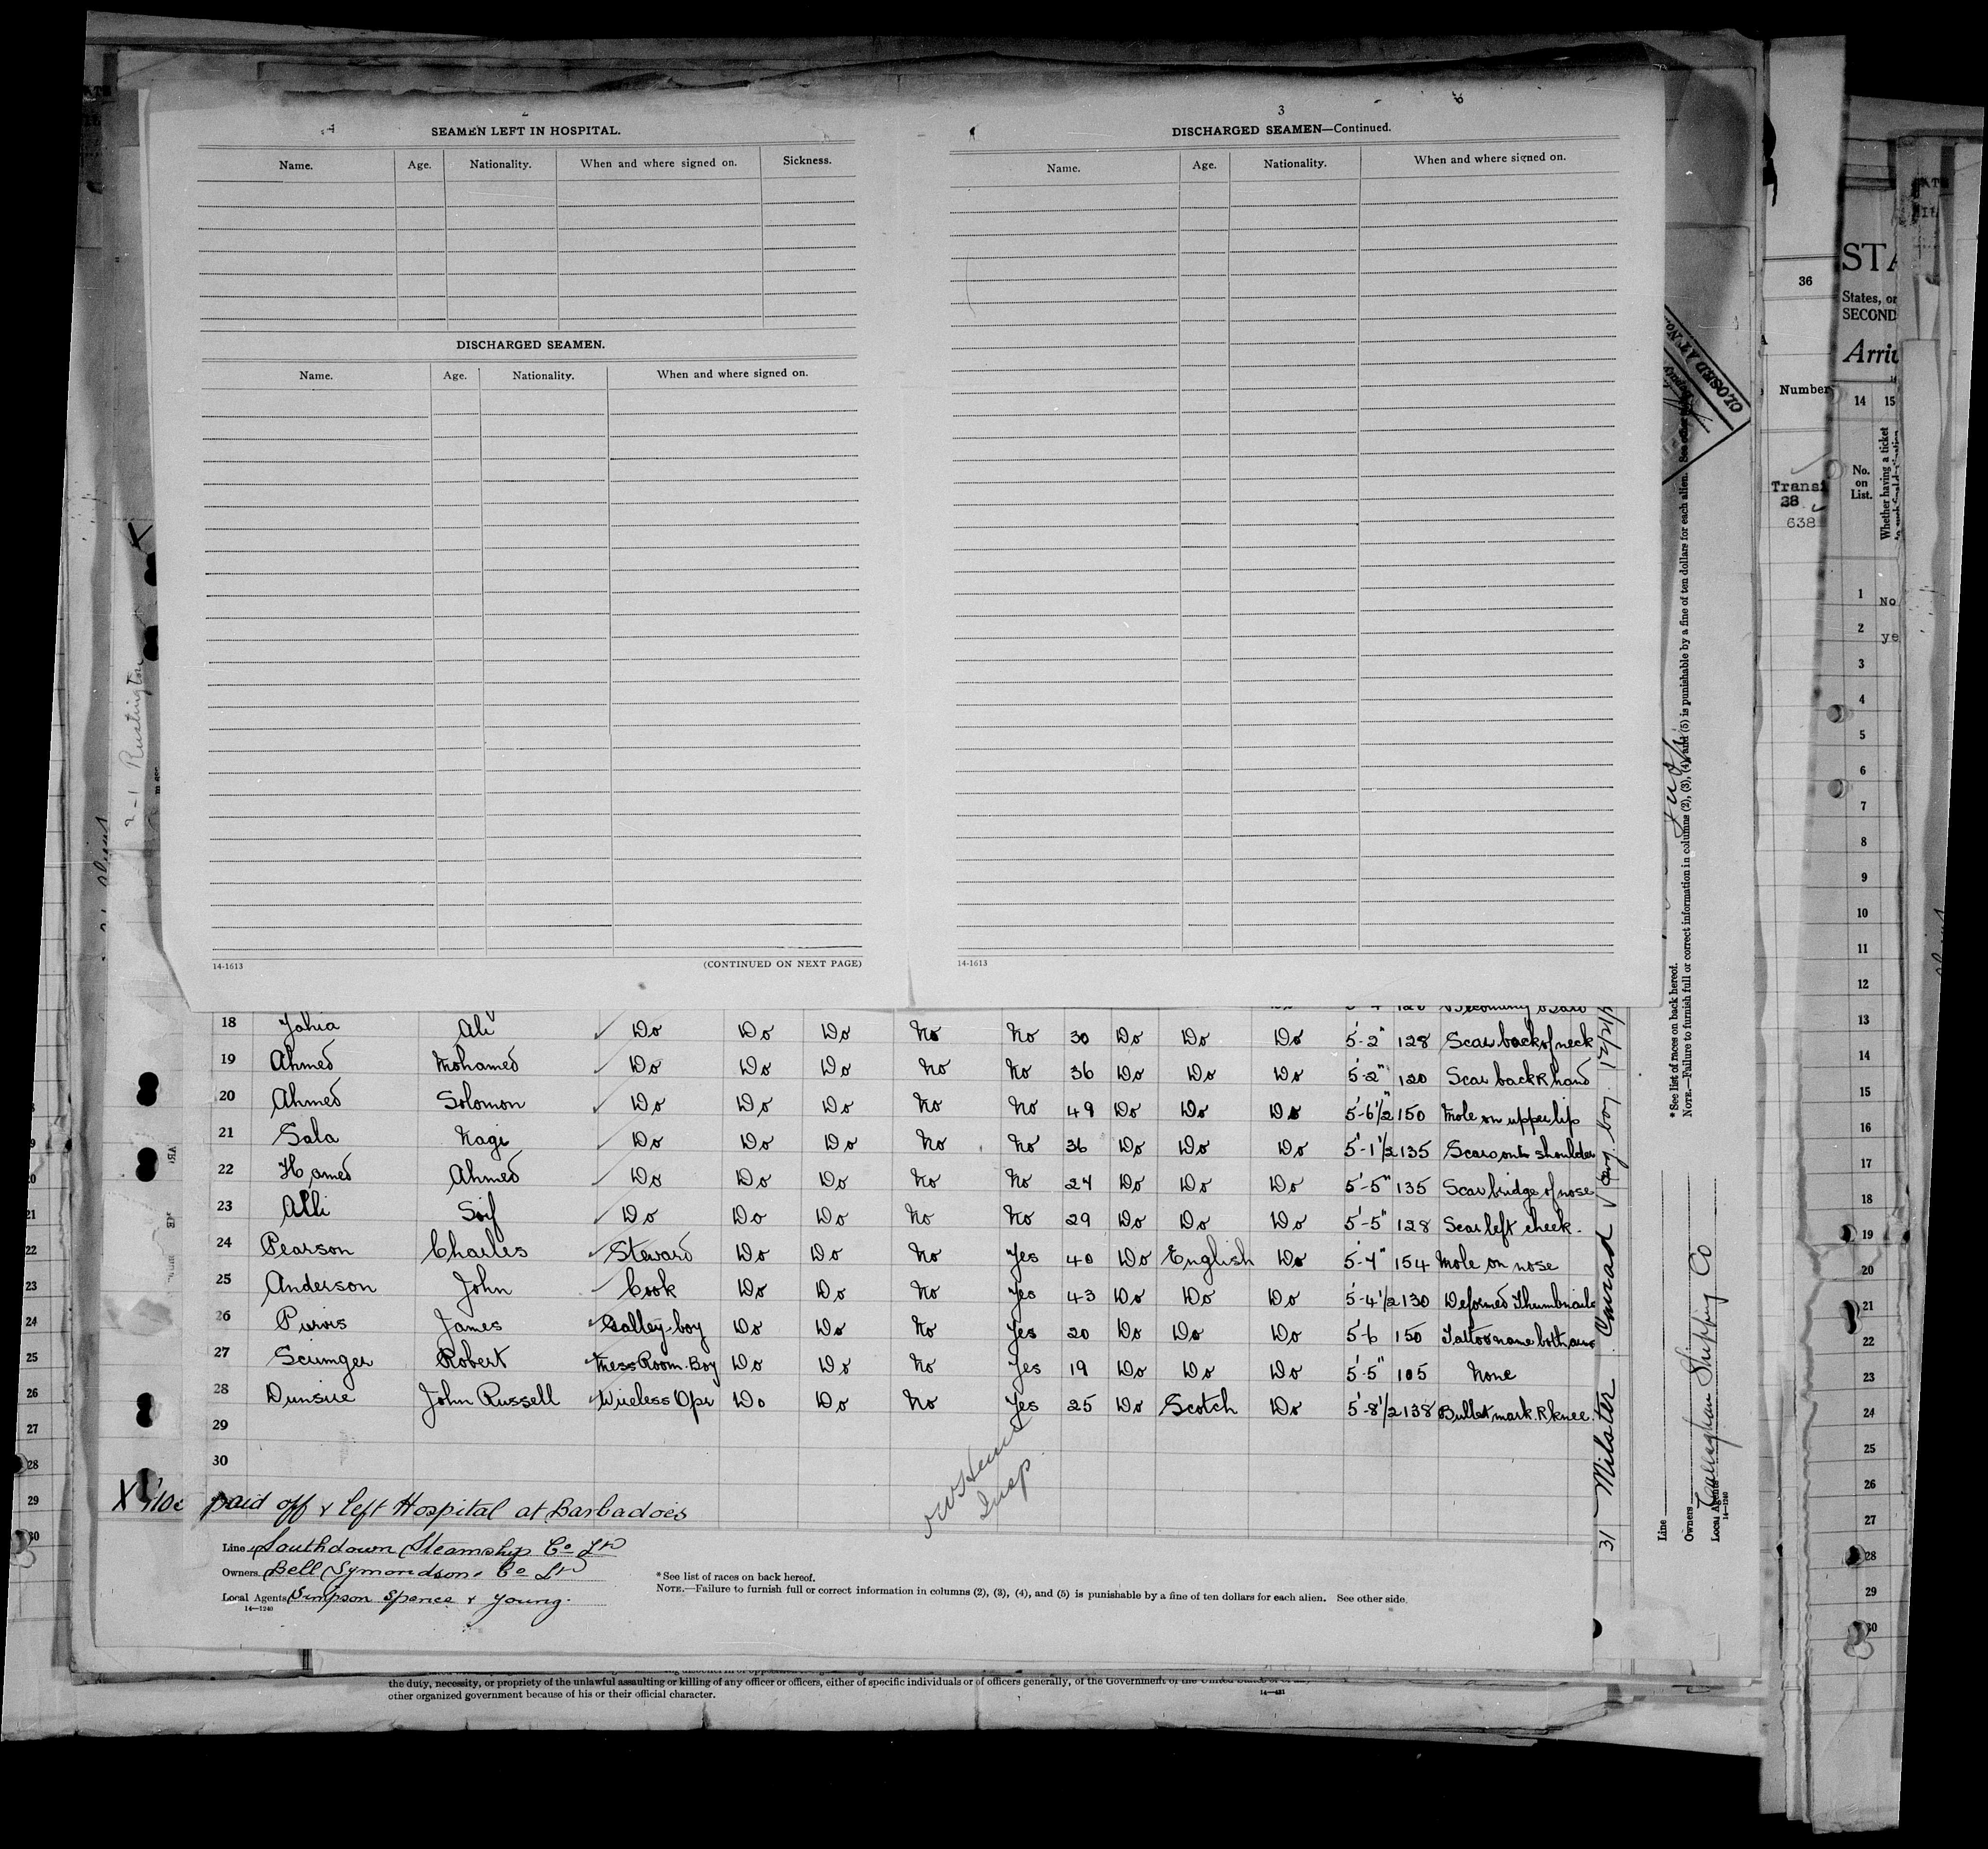 SEAMEN LEFT IN HOSPITAL.
Name. Age. Nationality. When and where signed on. Sickness.
DISCHARGED SEAMEN.
Name. Age. Nationality. When and where signed on.
14-1613 (CONTINUED ON NEXT PAGE)
3
DISCHARGED SEAMEN—Continued.
Name. Age. Nationality. When and where signed on.
14-1613
18 Yahia Ali Do Do Do No No 30 Do Do Do 5'-2" 128 Scar back of neck
19 Ahmed Mohamed Do Do Do No No 36 Do Do Do 5'-2" 120 Scar back R hand
20 Ahmed Solomon Do Do Do No No 49 Do Do Do 5'-6½" 150 Mole on upper lip
21 Sala Nagi Do Do Do No No 36 Do Do Do 5'-1½ 135 Scars on shoulder
22 Hamed Ahmed Do Do Do No No 24 Do Do Do 5'-5" 135 Scar bridge of nose
23 Alli Soif Do Do Do No No 29 Do Do Do 5'-5" 128 Scar left cheek.
24 Pearson Charles Steward Do Do No Yes 40 Do English Do 154 Mole on nose
25 Anderson John Cook Do Do No Yes 43 Do Do Do 5'-4½ 130 Deformed Thumbnails
26 Purvis James Galley-boy Do Do No Yes 20 Do Do Do 5'-6 150 Tattoo name both arms
27 Scrimger Robert Mess Room Boy Do Do No Yes 19 Do Do Do 5'-5" 105 None
28 Dunsire John Russell Wireless Opr Do Do No Yes 25 Do Scotch Do 5'-8½ 138 Bullet mark R knee.
29
30 Insp
X paid off & left Hospital at Barbadoes
Line Southdown Steamship Co Ltd
Owners Bell Symondson Co Ltd
Local Agents Simpson Spence & Young.
14—1240
*See list of races on back hereof.
NOTE.—Failure to furnish full or correct information in columns (2), (3), (4), and (5) is punishable by a fine of ten dollars for each alien. See other side.
the duty, necessity, or propriety of the unlawful assaulting or killing of any officer or officers, either of specific individuals or of officers generally, of the Government of the United
other organized government because of his or their official character.
2-1 Rustington
31 Milster Conrad
*See list of races on back hereof.
NOTE.—Failure to furnish full or correct information in columns (2), (3), (4), and (5) is punishable by a fine of ten dollars for each alien.
Line
Owners
Local Agents
14—1240
Shipping Co
CLOSED AT
36
Number
38
638
STA
States, or
SECOND
14 15
No.
on
List.
Whether having a ticket
1 No
2 ye
3
4
5
6
7
8
9
10
11
12
13
14
15
16
17
18
19
20
21
22
23
24
25
26
27
28
29
30